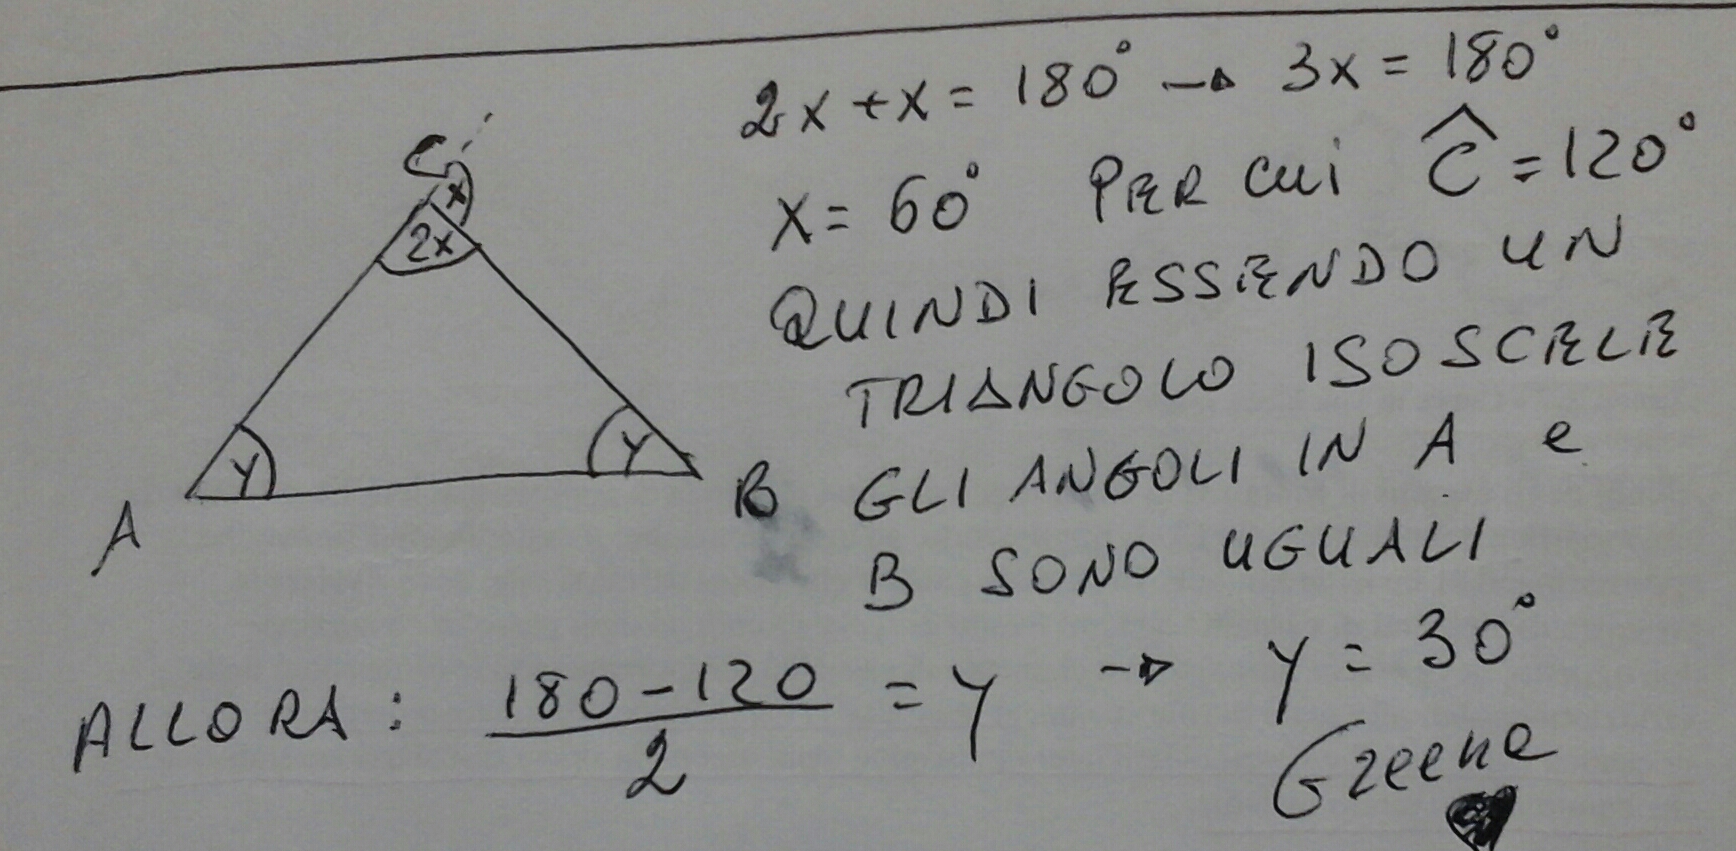 2x + x = 180° → 3x = 180°
C
x
2x
x = 60° PER CUI Ĉ = 120°
QUINDI ESSENDO UN
TRIANGOLO ISOSCELE
Y
Y
A
B
GLI ANGOLI IN A e
B SONO UGUALI
ALLORA: (180-120)/2 = Y → Y = 30°
Greene